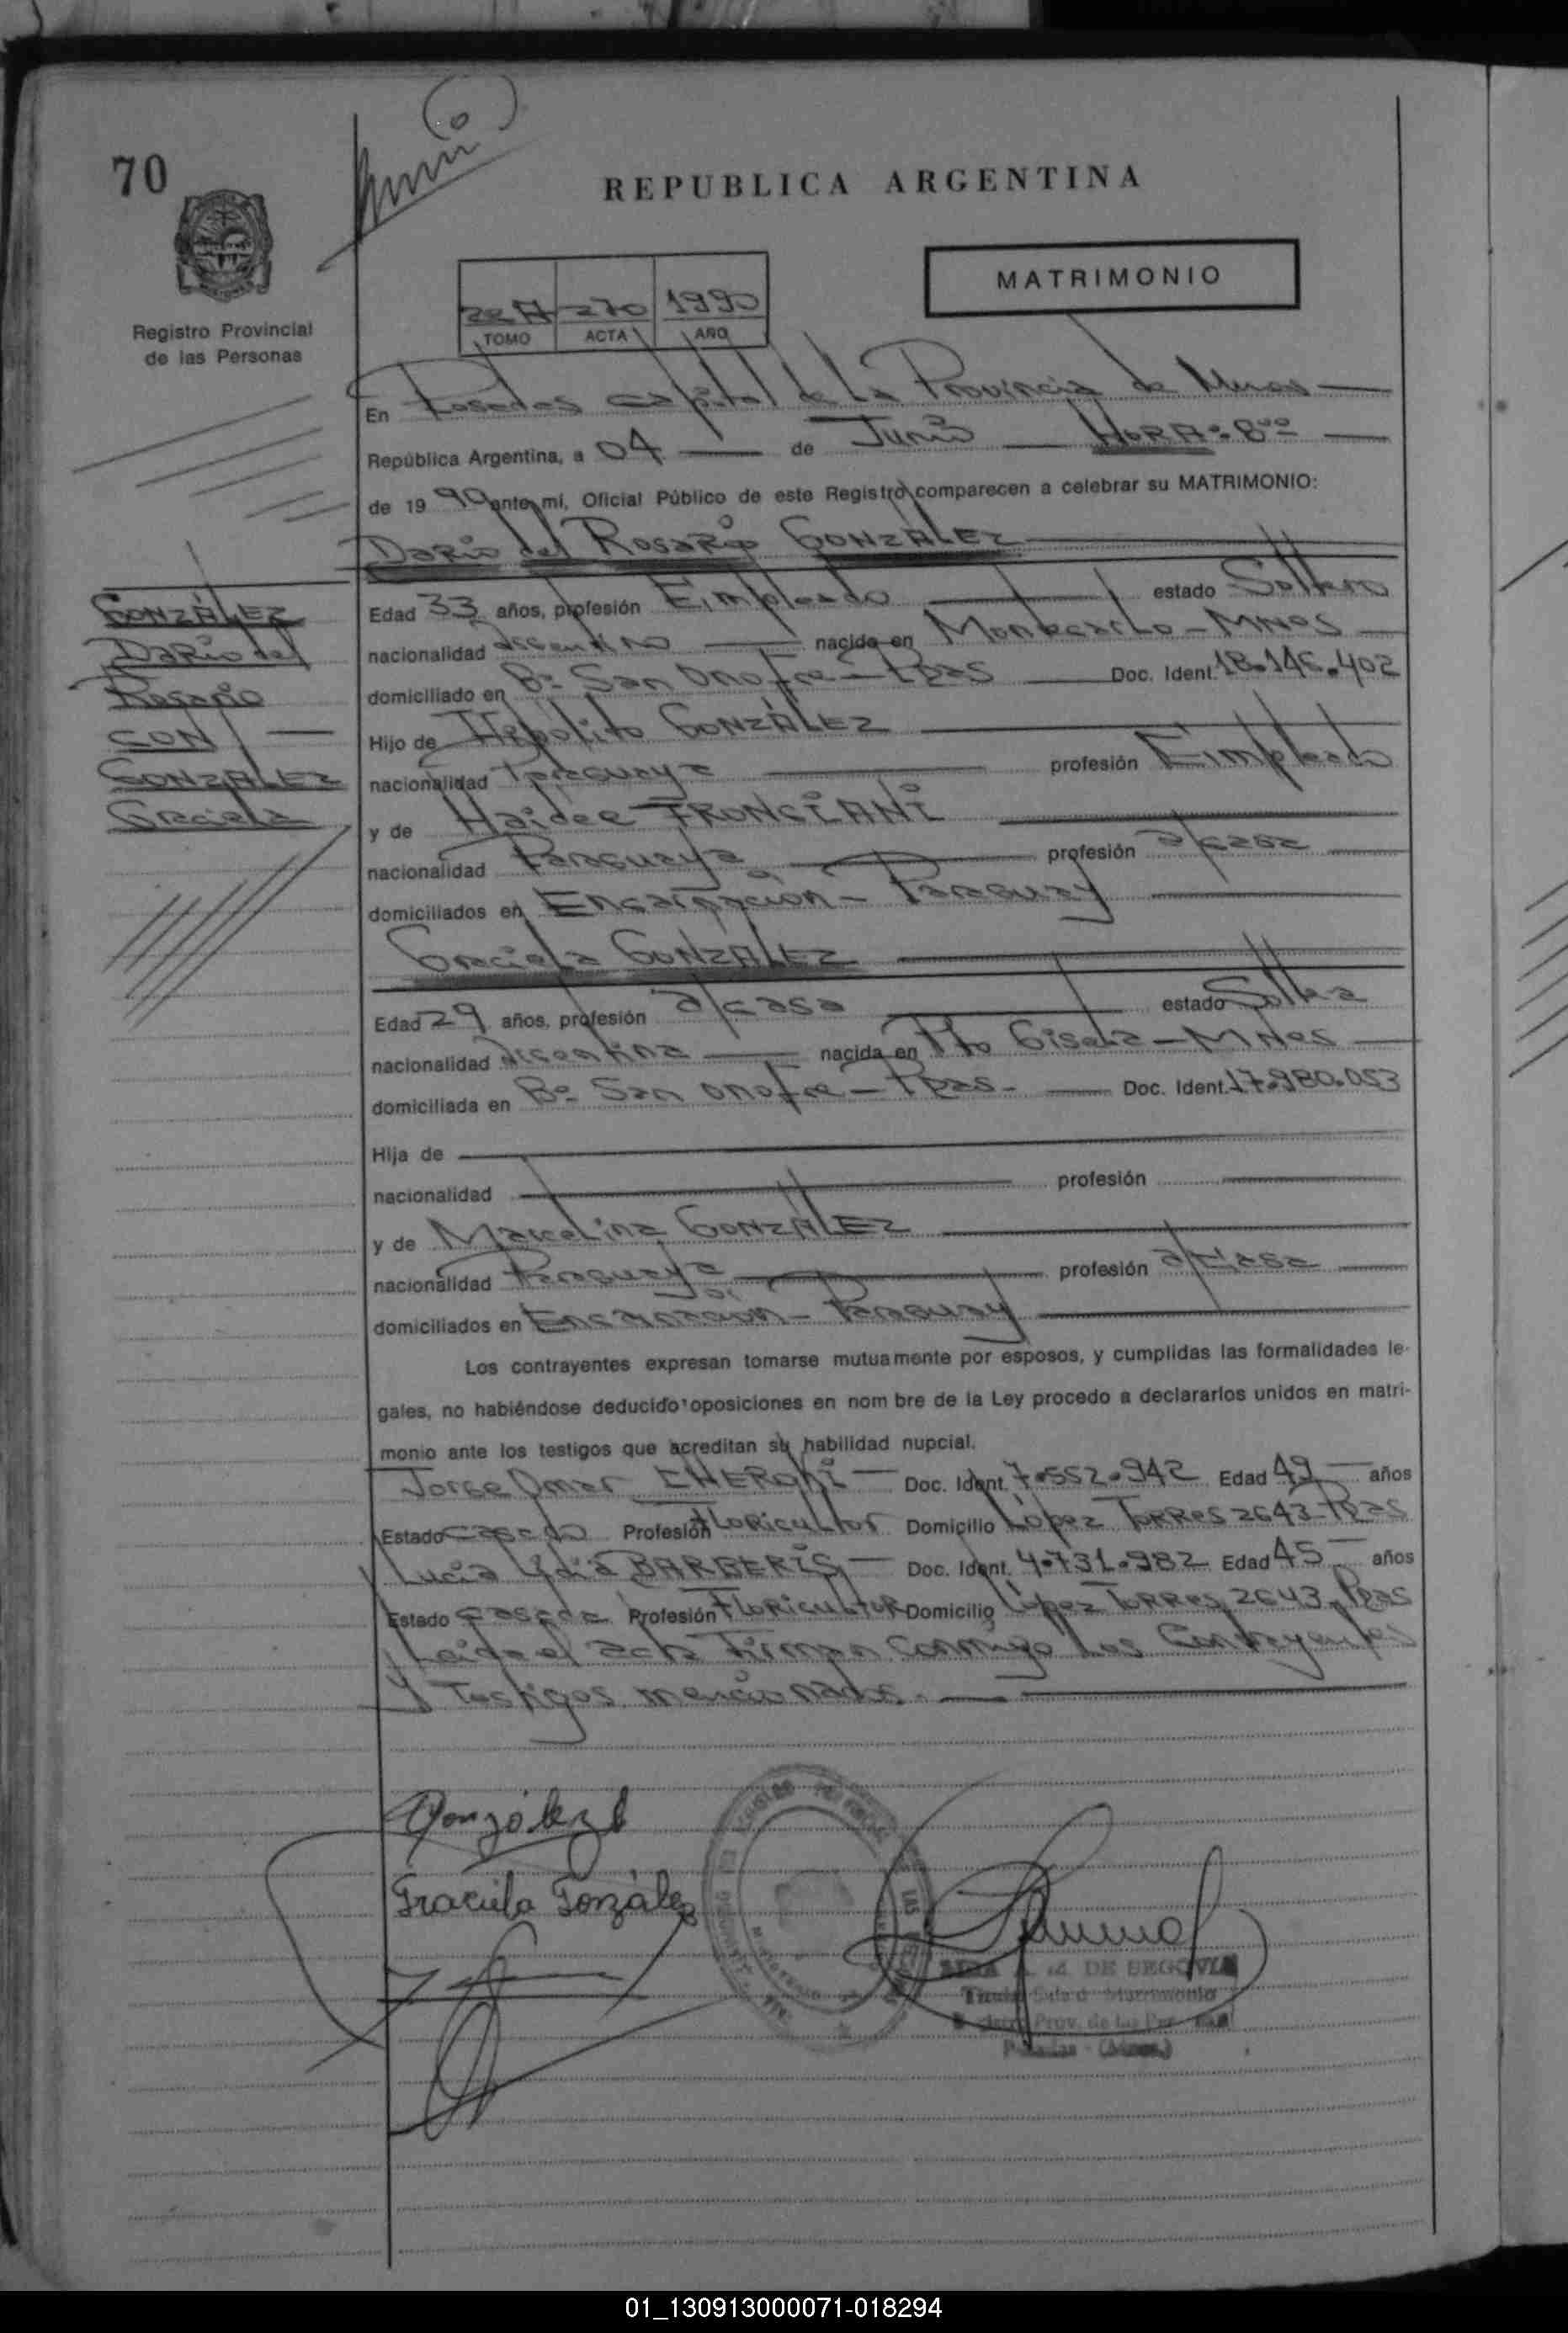 70
REPUBLICA ARGENTINA
MATRIMONIO
Registro Provincial
de las Personas
22 A 270 1990
TOMO ACTA AÑO
En Posadas Capital de La Provincia de Mnes
República Argentina, a 04 de Junio HORA: 8⁰⁰
de 1990 ante mi, Oficial Público de este Registro comparecen a celebrar su MATRIMONIO:
Dario del Rosario GONZÁLEZ
GONZÁLEZ
Dario del
Rosario
CON
GONZALEZ
Graciela
Edad 33 años, profesión Empleado estado Soltero
nacionalidad Argentino nacido en Montecarlo - MNes
domiciliado en Bº San Onofre - Pdas Doc. Ident. 18.146.402
Hijo de Hipolito GONZÁLEZ
nacionalidad Paraguaya profesión Empleado
y de Haidee FRONCIANI
nacionalidad Paraguaya profesión a/casa
domiciliados en Encarnación - Paraguay
Graciela GONZÁLEZ
Edad 29 años, profesión a/casa estado Soltera
nacionalidad Argentina nacida en Pto Gisela - MNes
domiciliada en Bº San Onofre - Pdas - Doc. Ident. 17.980.053
Hija de
nacionalidad profesión
y de Marcelina GONZÁLEZ
nacionalidad Paraguaya profesión a/casa
domiciliados en Encarnación - Paraguay
Los contrayentes expresan tomarse mutuamente por esposos, y cumplidas las formalidades le-
gales, no habiéndose deducido oposiciones en nom bre de la Ley procedo a declararlos unidos en matri-
monio ante los testigos que acreditan su habilidad nupcial.
Jorge Omar Doc. Ident. 7.552.942 Edad 49 años
Estado casado Profesión Floricultor Domicilio López Torres 2643 Pdas
Lucia Lidia BARBERIS Doc. Ident. 4.731.982 Edad 45 años
Estado casada Profesión Floricultor Domicilio López Torres 2643 Pdas
Leida el acta Firman conmigo Los Contrayentes
Y Testigos mencionados.
González
Graciela González
DE SEGOVIA
Titular Sala d Matrimonio
Prov. de las Per
Posadas - (Mnes.)
01_130913000071-018294